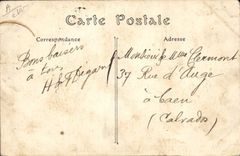 Carte Postale
Correspondance
Adresse
Bons baisers
à tous
H & J Bégard
Monsieur & Mme Clermont
37 Rue d'Auge
à Caen
(Calvados)